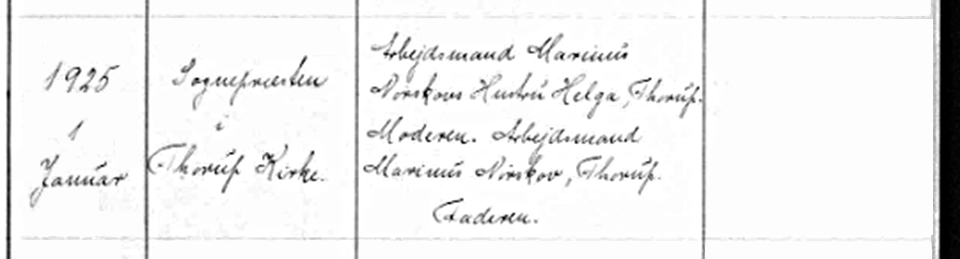 1925
1
Januar
Sognepræsten
i
Thorup Kirke.
Arbejdsmand Marinus
Norskovs Hustru Helga, Thorup.
Moderen. Arbejdsmand
Marinus Norskov, Thorup.
Faderen.